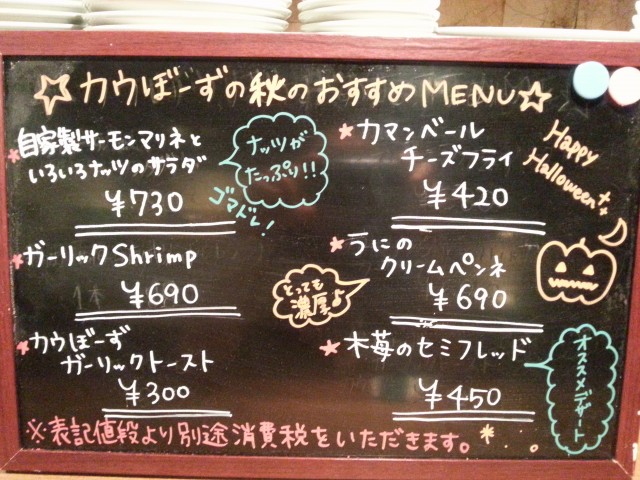 ☆カウぼーずの秋のおすすめMENU☆
*自家製サーモンマリネと
いろいろナッツのサラダ
¥730
ナッツが
たっぷり!!
ゴマドレ!
*ガーリックShrimp
¥690
*カウぼーず
ガーリックトースト
¥300
*カマンベール
チーズフライ
¥420
Happy
Halloween
*うにの
クリームペンネ
¥690
とっても
濃厚よ
*木苺のセミフレッド
¥450
オススメデザート
※表記値段より別途消費税をいただきます。